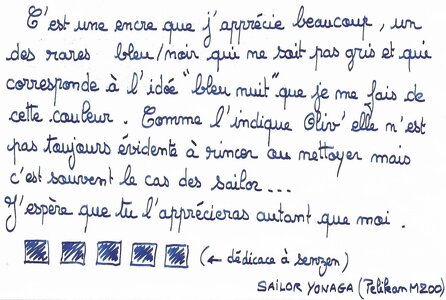 C'est une encre que j'apprécie beaucoup, un
des rares bleu/noir qui ne soit pas gris et qui
corresponde à l'idée "bleu nuit" que je me fais de
cette couleur. Comme l'indique Oliv' elle n'est
pas toujours évidente à rincer ou nettoyer mais
c'est souvent le cas des sailor...
J'espère que tu l'apprécieras autant que moi.
(← dédicace à senzen)
SAILOR YONAGA (Pelikan M200)